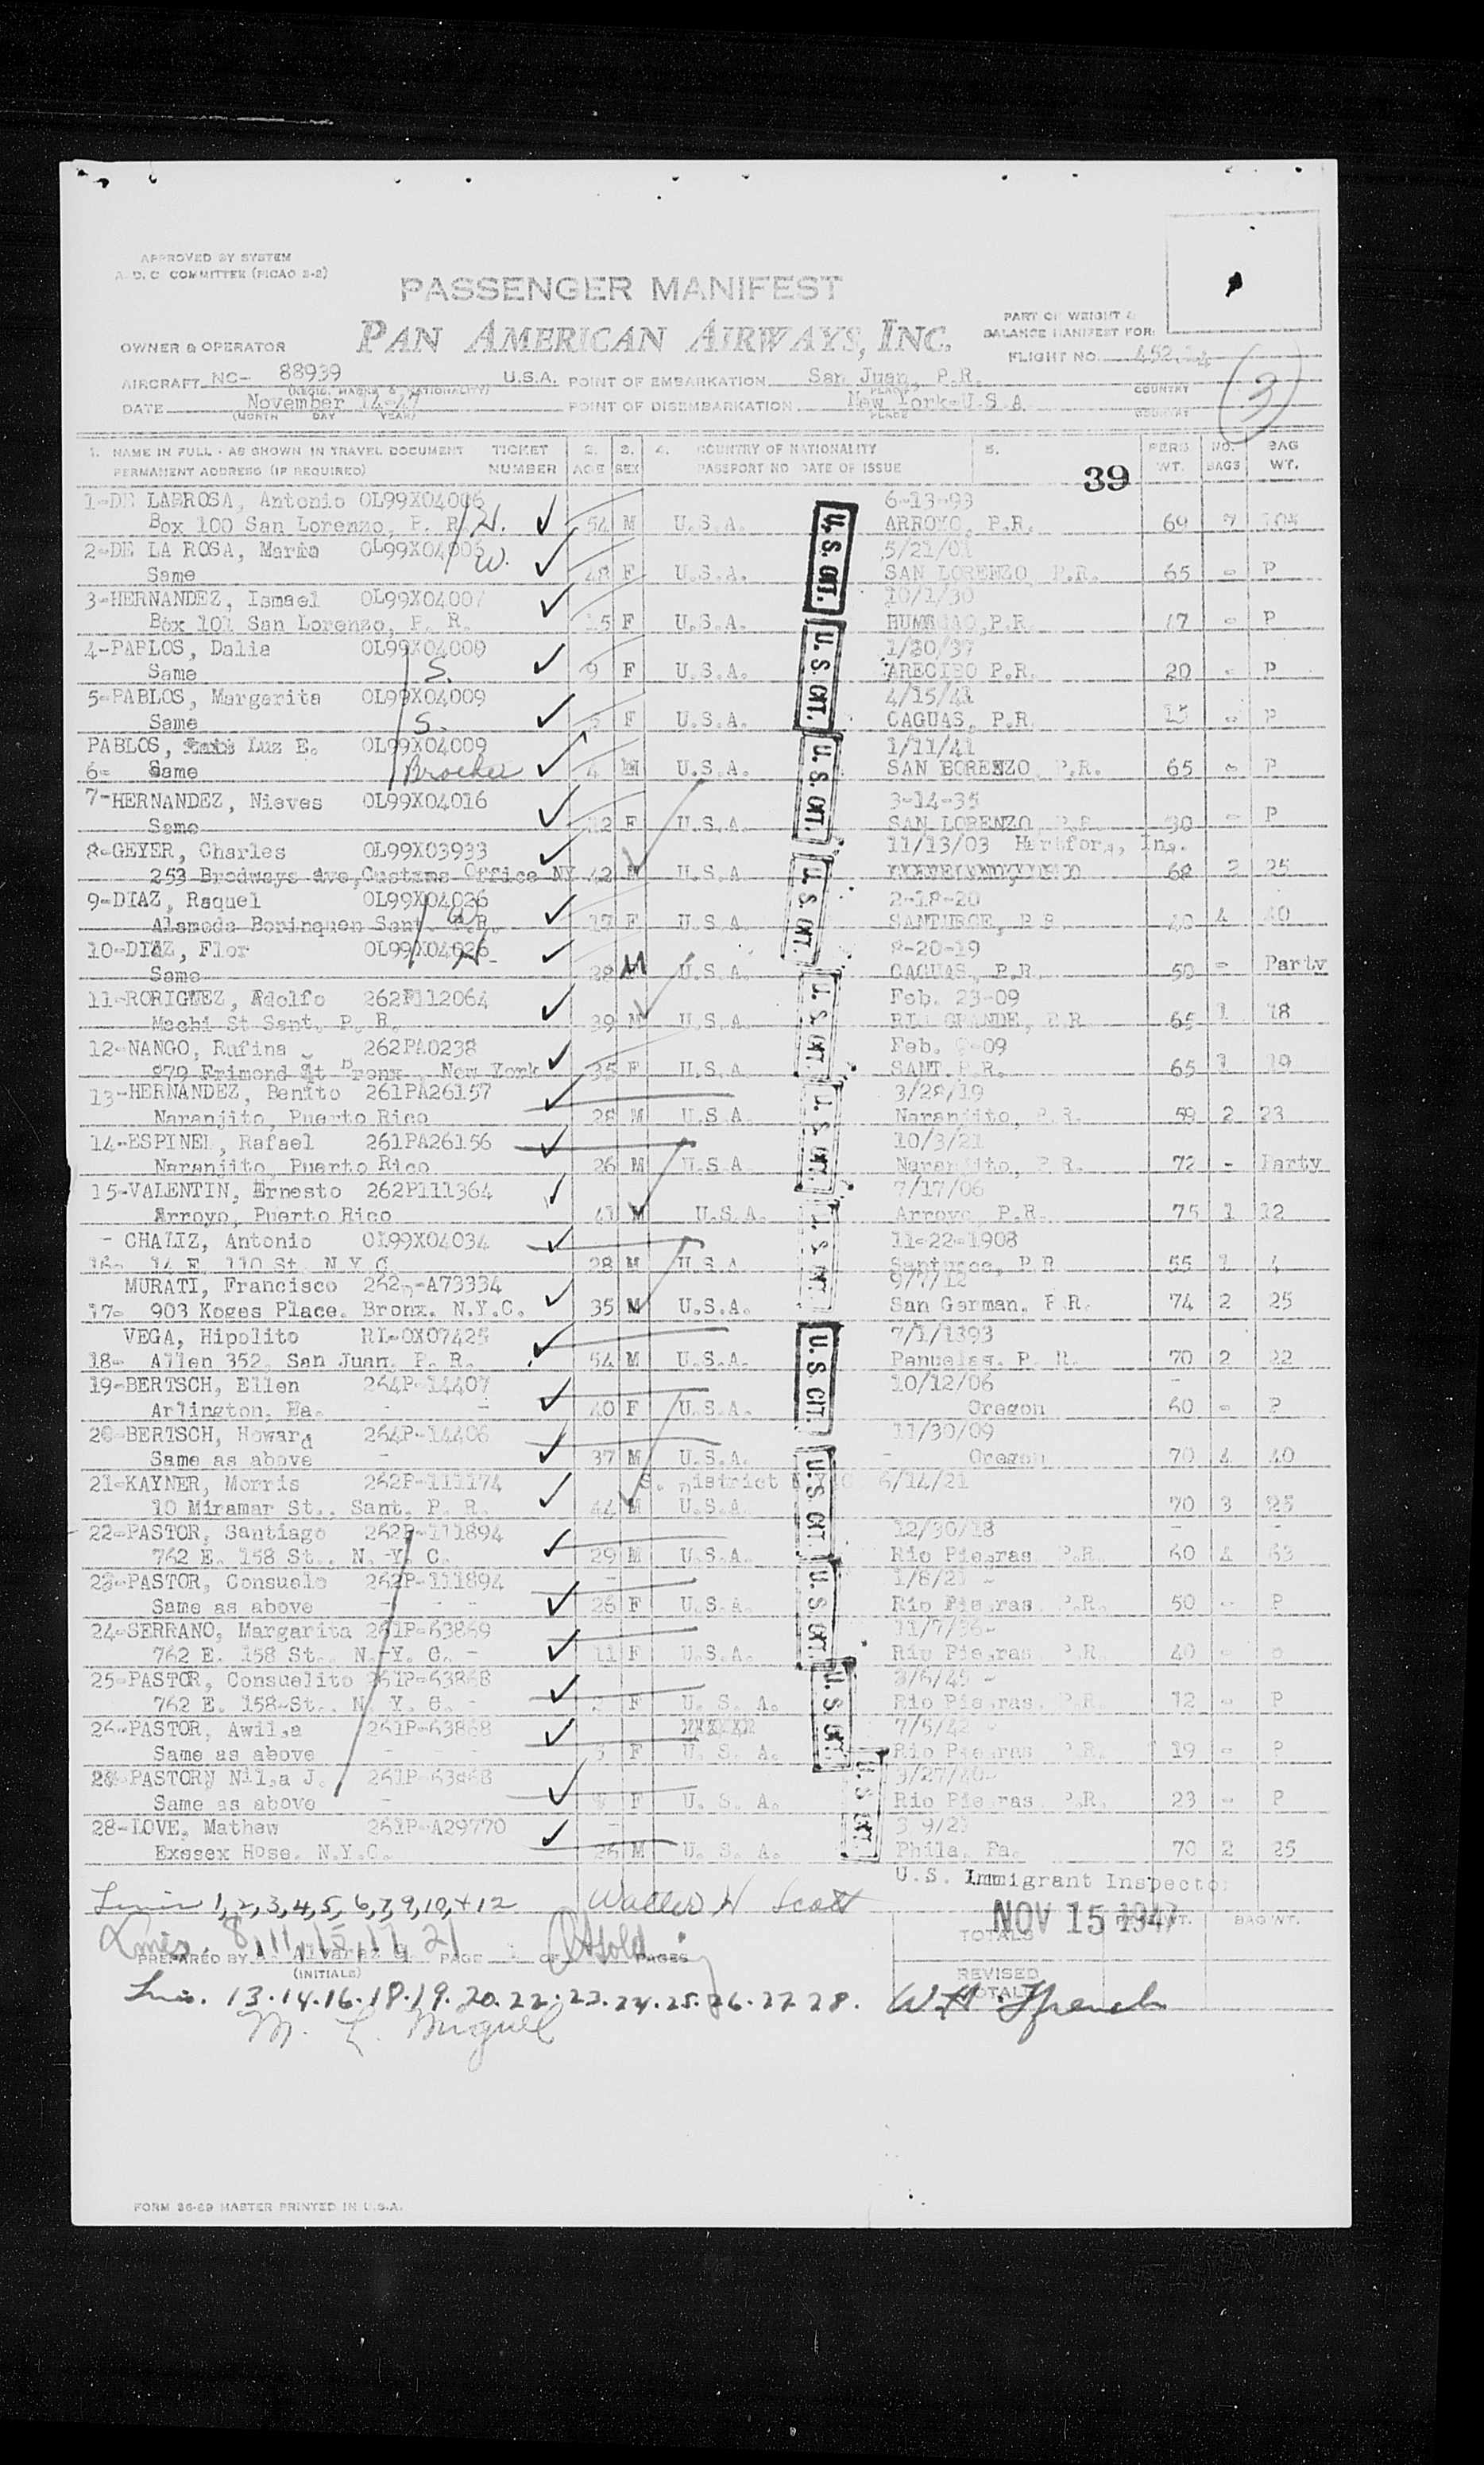 APPROVED BY SYSTEM
A.D.C. COMMITTEE (PICAO 2-2)
PASSENGER MANIFEST
PAN AMERICAN AIRWAYS, INC.
PART OF WEIGHT &
BALANCE MANIFEST FOR:
OWNER & OPERATOR
FLIGHT NO. 452
3
AIRCRAFT NC- 88939 U.S.A. POINT OF EMBARKATION San Juan, P.R. COUNTRY
(REGIS. MARKS & NATIONALITY) PLACE
DATE November 14-47 POINT OF DISEMBARKATION New York-U.S.A COUNTRY
(MONTH DAY YEAR) PLACE
1. NAME IN FULL - AS SHOWN IN TRAVEL DOCUMENT TICKET 2. 3. 4. COUNTRY OF NATIONALITY 5. PERS NO. BAG
PERMANENT ADDRESS (IF REQUIRED) NUMBER AGE SEX PASSPORT NO DATE OF ISSUE WT. BAGS WT.
39
1-DE LABROSA, Antonio OL99X04006 6-13-93
Box 100 San Lorenzo, P. R. H. 54 M U.S.A. ARROYO, P.R. 69 7 105
2-DE LA ROSA, Maria OL99X04006 5/21/01
Same W. 48 F U.S.A. SAN LORENZO, P.R. 65 - P
3-HERNANDEZ, Ismael OL99X04007 10/1/30
Box 101 San Lorenzo, P. R. 15 F U.S.A. HUMACAO, P.R. 47 - P
4-PABLOS, Dalia OL99X04009 1/20/37
Same S. 9 F U.S.A. ARECIBO P.R. 20 - P
5-PABLOS, Margarita OL99X04009 4/15/41
Same S. 5 F U.S.A. CAGUAS, P.R. 15 - P
PABLOS, Luz E. OL99X04009 1/11/41
6- Same Brother 4 M U.S.A. SAN BORENZO, P.R. 65 - P
7-HERNANDEZ, Nieves OL99X04016 3-14-35
Same 12 F U.S.A. SAN LORENZO P.R. 30 - P
8-GEYER, Charles OL99X03933 11/13/03 Hartford, In.
253 Brodways Ave, Customs Office NY 42 M U.S.A. 68 2 25
9-DIAZ, Raquel OL99X04026 2-18-20
Alameda Borinquen Sant. P.R. W 17 F U.S.A. SANTURCE, P.R. 40 4 40
10-DIAZ, Flor OL99X04026 8-20-19
Same H. 28 M U.S.A. CAGUAS, P.R. 50 - Party
11-RORIGUEZ, Adolfo 262P112064 Feb. 23-09
Machi St Sant. P. R. 39 M U.S.A. RIO GRANDE, P.R 65 1 18
12-NANGO, Rufina 262PA0238 Feb. -09
879 Frimond St Bronx. New York 35 F U.S.A. SANT. P.R. 65 1 19
13-HERNANDEZ, Benito 261PA26157 3/28/19
Naranjito, Puerto Rico 28 M U.S.A. Naranjito, P.R. 59 2 23
14-ESPINEL, Rafael 261PA26156 10/3/21
Naranjito, Puerto Rico 26 M U.S.A Naranjito, P.R. 72 - Party
15-VALENTIN, Ernesto 262P111364 7/17/06
Arroyo, Puerto Rico 41 M U.S.A. Arroyo, P.R. 75 1 12
- CHALIZ, Antonio OL99X04034 11-22-1908
16- 14 E. 110 St. N.Y.C. 28 M U.S.A Santurce, P.R 55 1 4
MURATI, Francisco 262P-A73334 9/7/12
17- 903 Koges Place. Bronx. N.Y.C. 35 M U.S.A. San German. P.R. 74 2 25
VEGA, Hipolito RL-OX07425 7/1/1393
18- Allen 352. San Juan. P. R. 54 M U.S.A. Penuelas. P. R. 70 2 22
19-BERTSCH, Ellen 264P-14407 10/12/06
Arlington, Ha. 40 F U.S.A. Oregon 60 - P
20-BERTSCH, Howard 264P-14406 11/30/09
Same as above 37 M U.S.A. Oregon 70 4 40
21-KAYNER, Morris 262P-111174 S. District 6/14/21
10 Miramar St.. Sant. P. R. 44 M U.S.A. 70 3 25
22-PASTOR, Santiago 262P-111894 12/30/18
762 E. 158 St.. N. Y. C. 29 M U.S.A. Rio Piedras P.R. 60 4 63
23-PASTOR, Consuelo 262P-111894 1/8/21
Same as above 26 F U.S.A. Rio Piedras P.R. 50 - P
24-SERRANO, Margarita 261P-63869 11/7/36-
762 E. 158 St. N.-Y. C. 11 F U.S.A. Rio Piedras P.R. 40 -
25-PASTOR, Consuelito 261P-63868 3/6/45 -
762 E. 158-St.. N. Y. C. - F U. S. A. Rio Piedras. P.R. 12 - P
26-PASTOR, Awilda 261P-63868 7/5/42
Same as above 5 F U. S. A. Rio Piedras P.R. 19 - P
28-PASTOR, Nilsa J. 261P-63868 3/27/40-
Same as above F U. S. A. Rio Piedras P.R. 23 - P
28-LOVE, Mathew 261P-A29770 3 9/21
Exssex Hose. N.Y.C. 26 M U. S. A. Phila. Pa. 70 2 25
U.S. CIT.
U.S. CIT.
U.S. CIT.
U.S. CIT.
U.S. CIT.
U.S. CIT.
U.S. CIT.
U.S. CIT.
U.S. CIT.
U.S. CIT.
U.S. CIT.
U.S. CIT.
U.S. Immigrant Inspector
1,2,3,4,5,6,7,9,10,+12 Walter H Scott
NOV 15 1947
TOTALS BAG WT.
8,11,15,17,21
PREPARED BY Alvarez PAGE OF PAGES
(INITIALS)
REVISED
TOTALS
13.14.16.18.19.20.22.23.24.25.26.27 28. W.H. French
M. L. Miguel
FORM 36-29 MASTER PRINTED IN U.S.A.